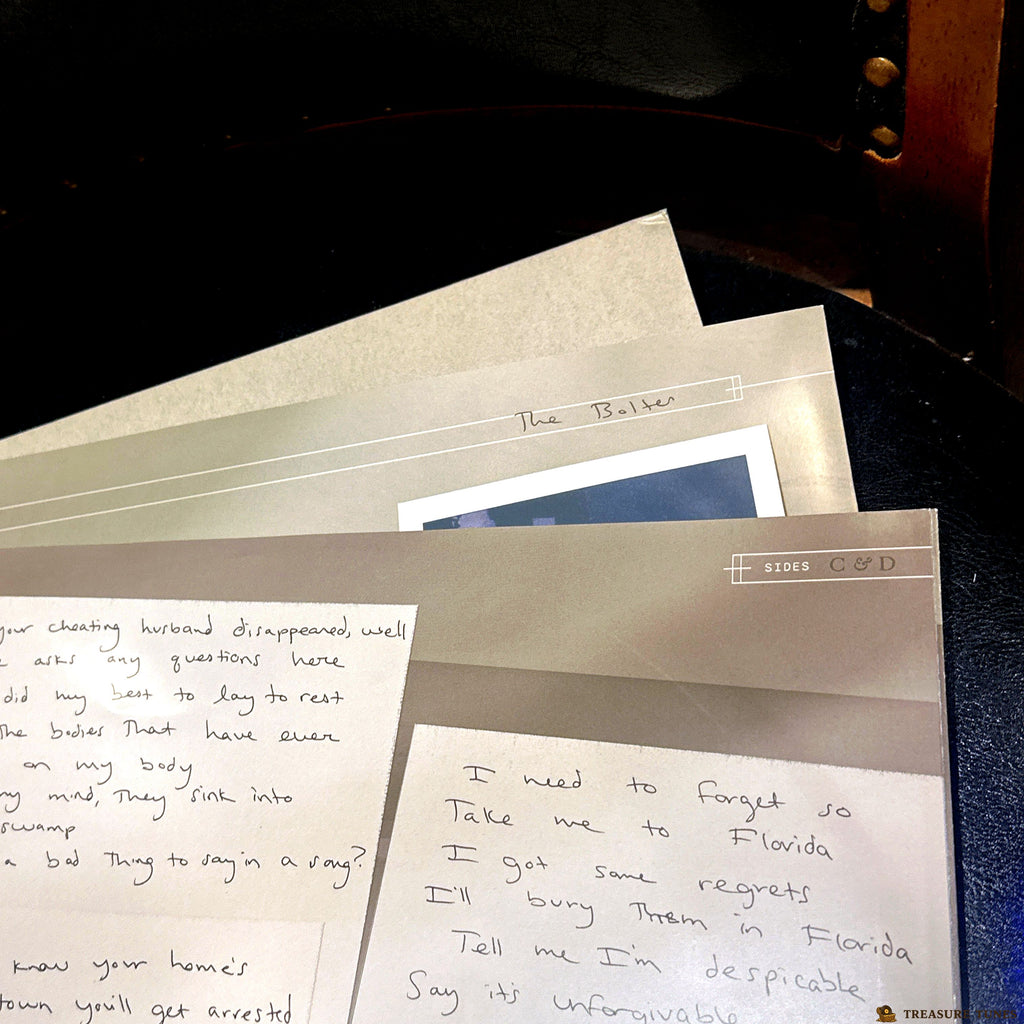 The Bolter
SIDES C & D
your cheating husband disappeared, well
asks any questions here
did my best to lay to rest
the bodies that have ever
on my body
my mind, they sink into
swamp
a bad thing to say in a song?
know your home's
town you'll get arrested
I need to forget so
Take me to Florida
I got some regrets
I'll bury them in Florida
Tell me I'm despicable
Say it's unforgivable
TREASURE